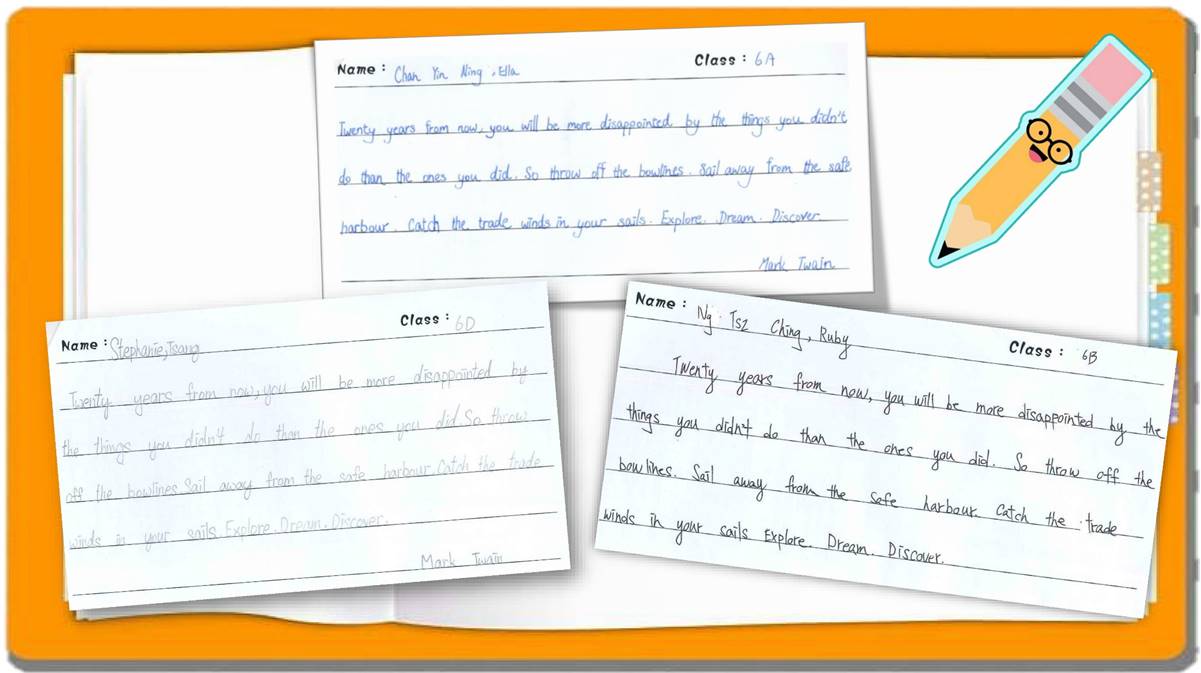 Name : Chan Yin Ning , Ella Class : 6A
Twenty years from now, you will be more disappointed by the things you didn't
do than the ones you did. So throw off the bowlines. Sail away from the safe
harbour. Catch the trade winds in your sails. Explore. Dream. Discover
Mark Twain
Name : Stephanie,Tsang Class : 6D
Twenty years from now, you will be more disappointed by
the things you didn't do than the ones you did. So throw
off the bowlines. Sail away from the safe harbour. Catch the trade
winds in your sails. Explore. Dream. Discover.
Mark Twain
Name : Ng Tsz Ching, Ruby Class : 6B
Twenty years from now, you will be more disappointed by the
things you didn't do than the ones you did. So throw off the
bowlines. Sail away from the safe harbour. Catch the trade
winds in your sails Explore. Dream. Discover.